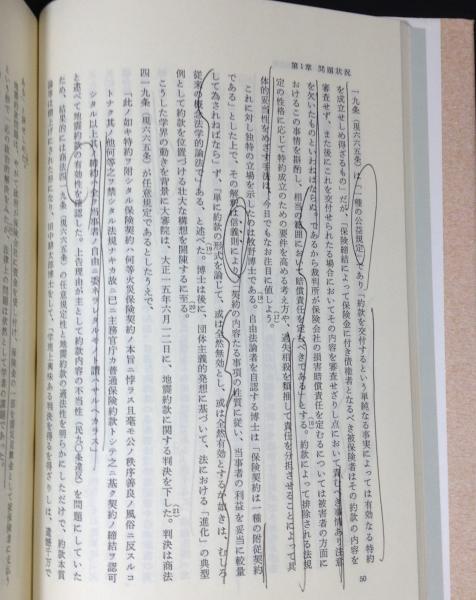 第1章 問題状況
50
一九条(現六六五条)は「一種の公益規定」であり「約款を交付するという単純なる事実によっては有効なる特約
を成立せしめ得ざるもの」だが、「保険締結によって保険金に付き債権者となるべき被保険者はその約款の内容を
審査せず、また後にこれを交付せられたる場合においてその内容を審査せざりし点において責むべき事情あり注意
を欠いたものといわねばならぬ。であるから裁判所が保険会社の損害賠償責任を定むるについては被害者の方面に
おけるこの事情を斟酌し、相当の範囲において賠償責任を定むべきである」とする。約款によって排除される法規
定の性格に応じて特約成立のための要件を高める考え方や、過失相殺を類推して責任を分担させることによって具
体的妥当性をめざす手法は、今日でもなお注目に値しよう。
これに対し独特の立場を示したのは牧野博士である。自由法論者を自認する博士は「保険契約は一種の附従契約
である」とした上で、その解釈は信義則により「契約の内容たる事項の性質に従い、当事者の利益を妥当に較量
して為されねばならぬ」ず、「単に約款の形式を論じて、或は全然無効とし、或は全然有効とするが如きは、むしろ
従来の概念法学的論法である」、と述べた。博士は後に、団体主義的発想に基づいて、法における「進化」の典型
例として約款を位置づける壮大な構想を開陳するに至る。
こうした学界の動きを背景に大審院は、大正一五年六月一二日に、地震約款に関する判決を下した。判決は商法
四一九条(現六六五条)が任意規定であるとしたうえで、
「此ノ如キ特約ヲ附シタル保険契約ハ何等火災保険契約ノ本旨ニ悖ラス且毫モ公ノ秩序善良ノ風俗ニ反スルコ
トナク其ノ他何等之ヲ禁シタル法規ナキカ故ニ已ニ主務官庁カ普通保険約款トシテ之ニ基ク契約ノ締結ヲ認可
シタル以上其ノ特約ハ全ク当事者ノ自由ニ委ネラレタルモノト謂ハサルヘカラス」
と述べて地震約款の有効性を確認した。上告理由が主として約款内容の不当性(民九〇条違反)を問題にしていた
ため、結果的には商法四一九条(現六六五条)の任意規定性と地震約款の適法性を明らかにしただけで、約款本質